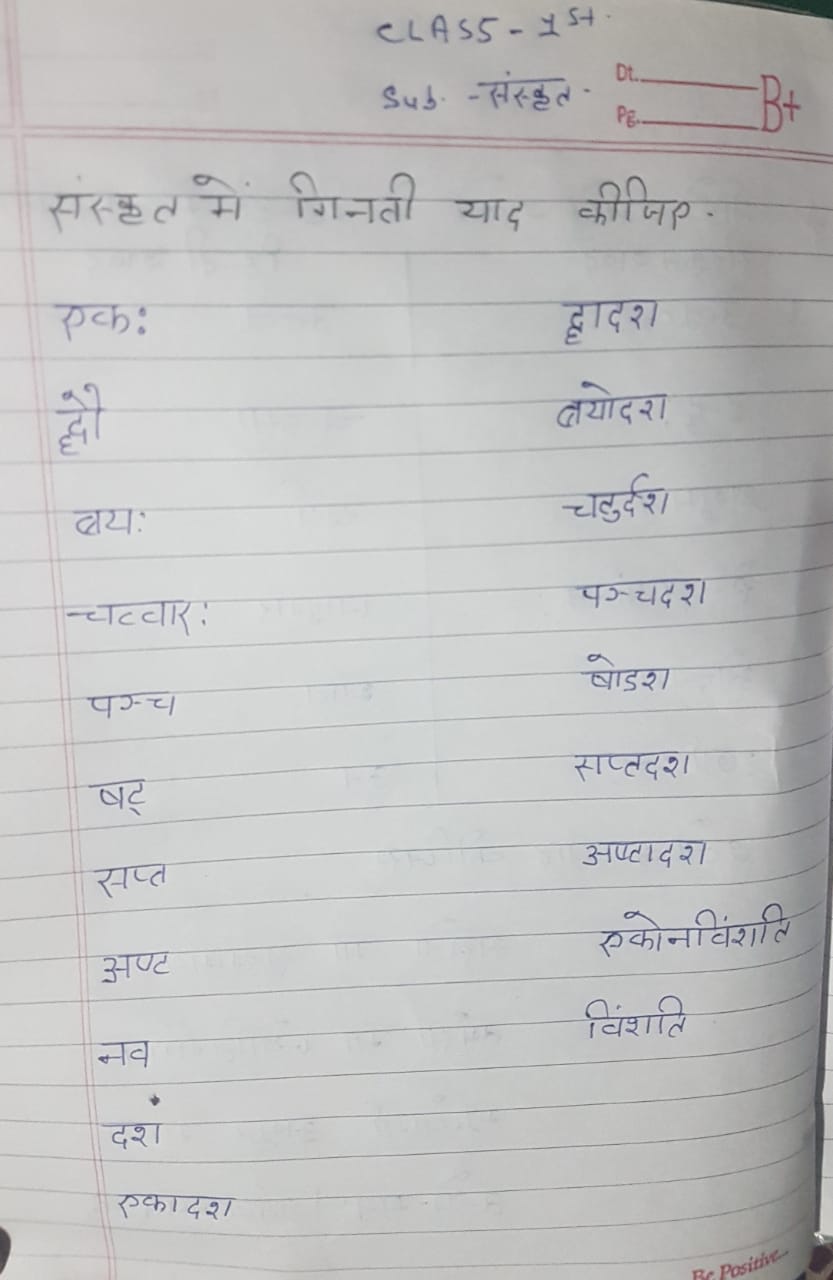 CLASS - 1st.
Sub. - संस्कृत.
Dt.
Pg.
B+
संस्कृत में गिनती याद कीजिए.
एक:
द्वौ
त्रय:
चत्वार:
पञ्च
षट्
सप्त
अष्ट
नव
दश
एकादश
द्वादश
त्रयोदश
चतुर्दश
पञ्चदश
षोडश
सप्तदश
अष्टादश
एकोनविंशति
विंशति
Be Positive